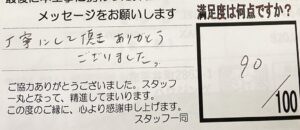 メッセージをお願いします
丁寧にして頂き ありがとう
ございました。
ご協力ありがとうございました。スタッフ
一丸となって、精進してまいります。
この度のご縁に、心より感謝申し上げます。
スタッフ一同
満足度は何点ですか？
90
/100